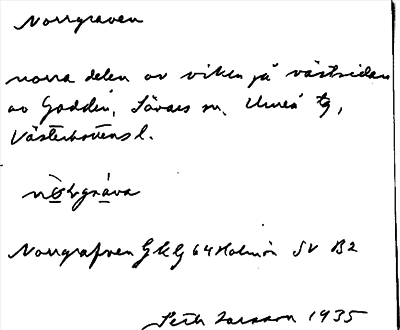 Norrgraven
norra delen av viken på västsidan
av Gadden, Sävars sn, Umeå tg,
Västerbottens l.
Norrgrafven GKG 64 Holmön SV B2
Seth Larsson 1935